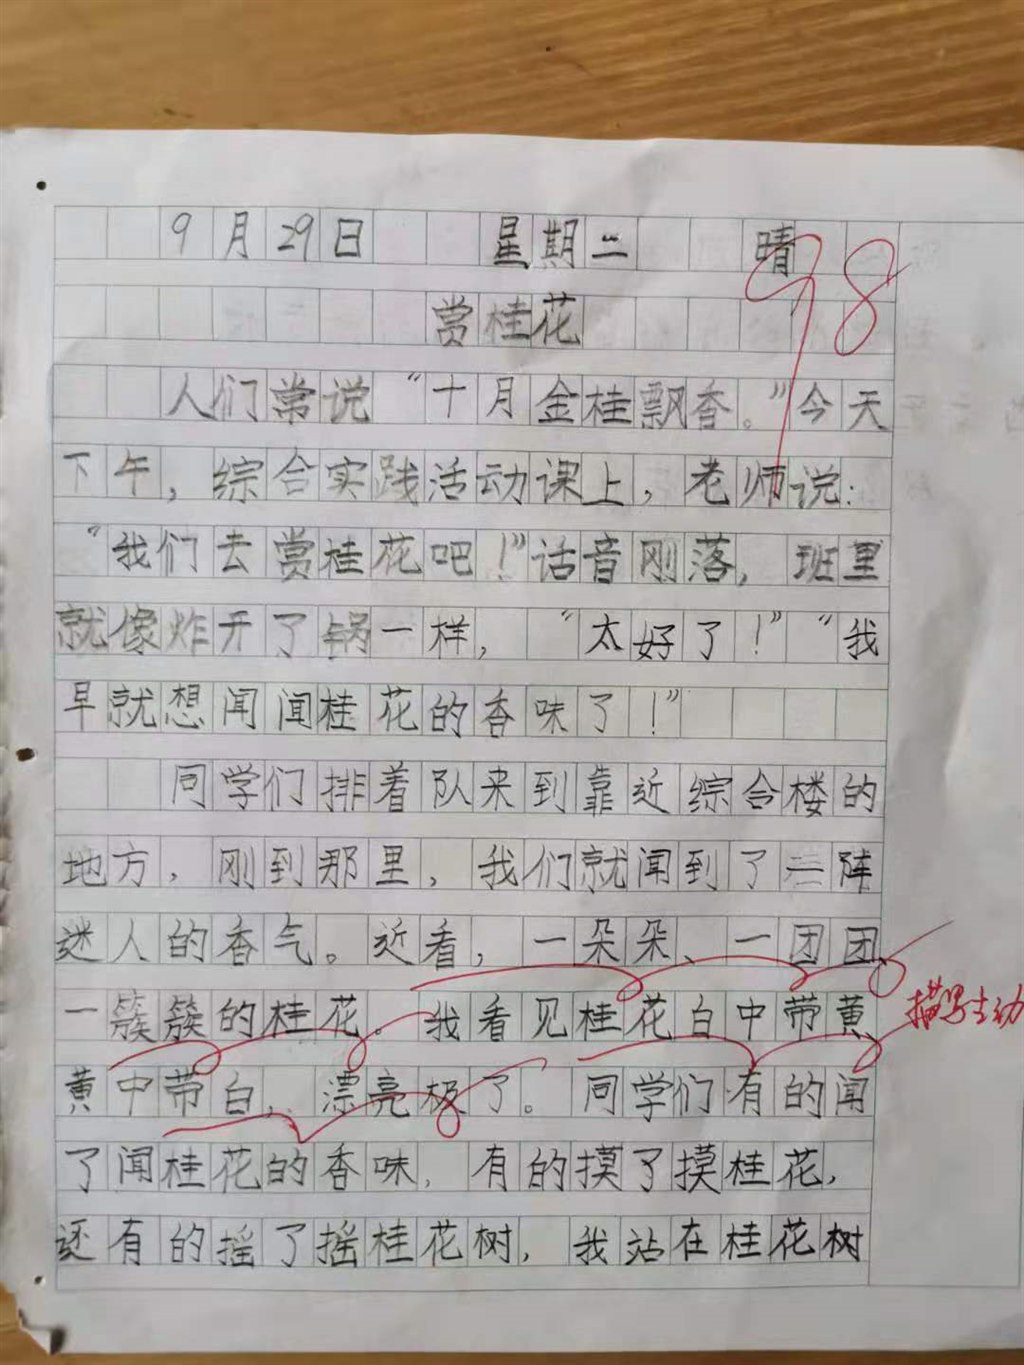 9月29日 星期二 晴
98
赏桂花
人们常说“十月金桂飘香。”今天
下午，综合实践活动课上，老师说：
“我们去赏桂花吧！”话音刚落，班里
就像炸开了锅一样，“太好了！”“我
早就想闻闻桂花的香味了！”
同学们排着队来到靠近综合楼的
地方，刚到那里，我们就闻到了一阵
迷人的香气。近看，一朵朵、一团团、
一簇簇的桂花。我看见桂花白中带黄、
描写生动
黄中带白，漂亮极了。同学们有的闻
了闻桂花的香味，有的摸了摸桂花，
还有的摇了摇桂花树，我站在桂花树